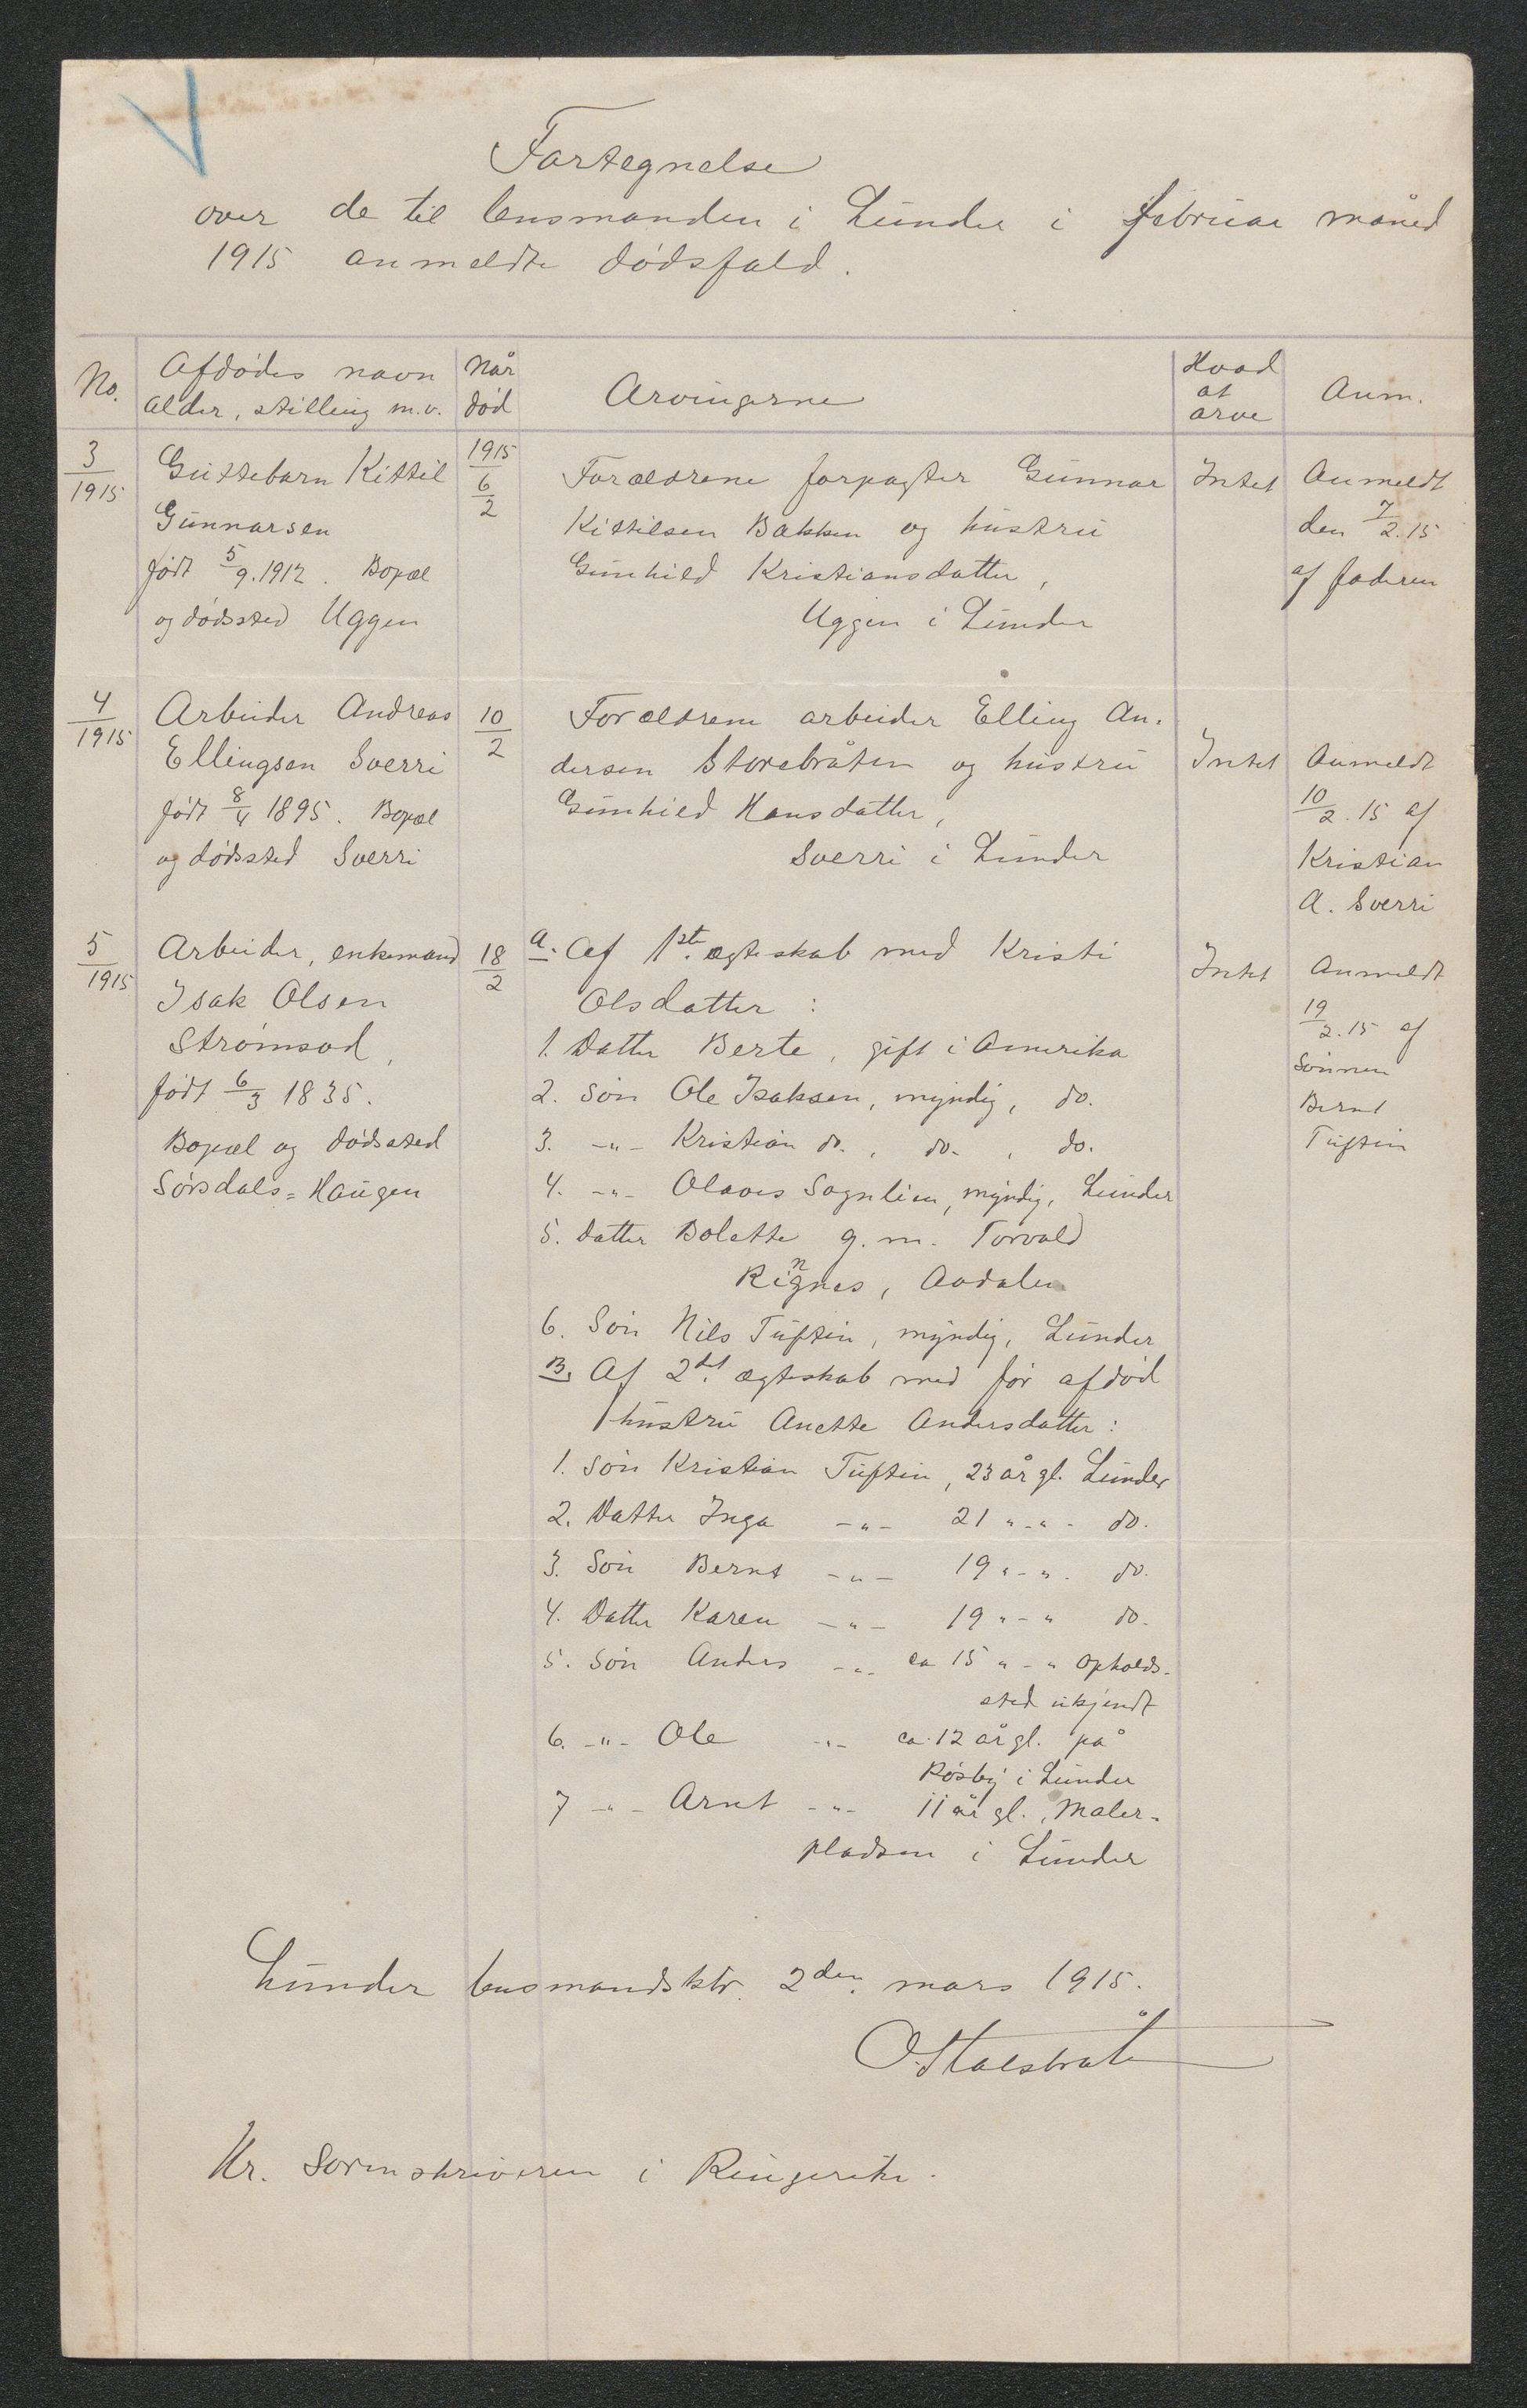 Fortegnelse
over de til lensmanden i Lunder i februar måned
1915 anmeldte dødsfald.
No.
Afdødes navn
alder, stilling m.v.
Når
død
Arvingerne
Hvad
at
arve
Anm.
3/1915
Guttebarn Kittil
Gunnarsen
født 5/9.1912. Bopæl
og dødssted Uggen
1915
6/2
Forældrene forpagter Gunnar
Kittilsen Bakken og hustru
Gunhild Kristiansdatter,
Uggen i Lunder
Intet
Anmeldt
den 7/2.15
af faderen
4/1915
Arbeider Andreas
Ellingsen Sverri
født 8/4 1895. Bopæl
og dødssted Sverri
10/2
Forældrene arbeider Elling An-
dersen Storebråten og hustru
Gunhild Hansdatter,
Sverri i Lunder
Intet
Anmeldt
10/2.15 af
Kristian
A. Sverri
5/1915
Arbeider, enkemand
Isak Olsen
Strømsod,
født 6/3 1835.
Bopæl og dødssted
Sørsdals=Haugen
18/2
A. Af 1ste ægteskab med Kristi
Olsdatter:
1. Datter Berte, gift i Amerika
2. Søn Ole Isaksen, myndig, do.
3. -"- Kristian do., do., do.
4. -"- Olaves Sognlien, myndig, Lunder
5. Datter Bolette g.m. Torvald
Ringnes, Aadalen
6. Søn Nils Tuftin, myndig, Lunder
B. Af 2det ægteskab med før afdød
hustru Anette Andersdatter:
1. Søn Kristian Tuftin, 23 år gl. Lunder
2. Datter Inga -"- 21 "-"- do.
3. Søn Bernt -"- 19 "-"- do.
4. Datter Karen -"- 19 "-" do.
5. Søn Anders -"- ca 15 "-" Opholds-
sted ukjendt
6. -"- Ole -"- ca. 12 år gl. på
Røsby i Lunder
7 -"- Arnt -"- 11 år gl., Maler-
pladsen i Lunder
Intet
Anmeldt
19/2.15 af
Sønnen
Bernt
Tuftin
Lunder lensmandsktr. 2den mars 1915.
O. Stalsbråten
Hr. Sorenskriveren i Ringerike.